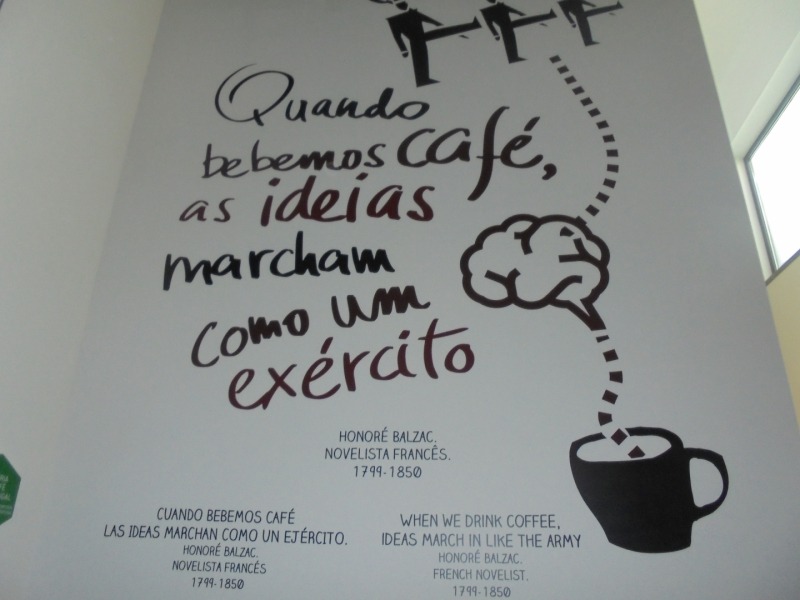 Quando
bebemos café,
as ideias
marcham
como um
exército
HONORÉ BALZAC.
NOVELISTA FRANCÊS.
1799-1850
CUANDO BEBEMOS CAFÉ
LAS IDEAS MARCHAN COMO UN EJÉRCITO.
HONORÉ BALZAC.
NOVELISTA FRANCÉS
1799-1850
WHEN WE DRINK COFFEE,
IDEAS MARCH IN LIKE THE ARMY
HONORÉ BALZAC.
FRENCH NOVELIST.
1799-1850